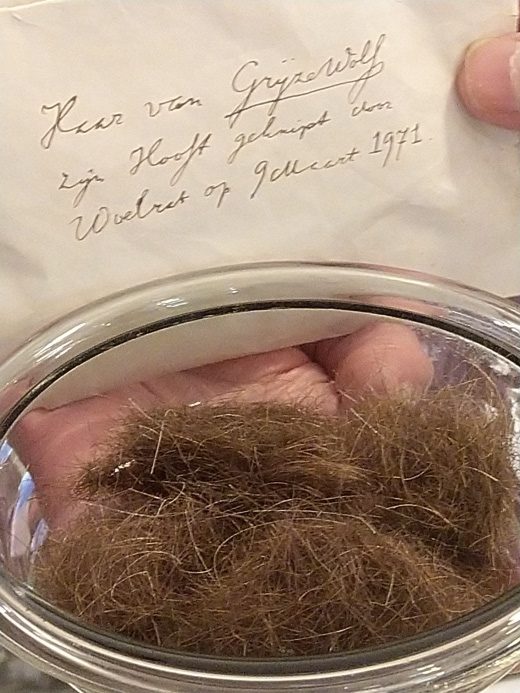 Haar van GrijzeWolf
zijn Hooft geknipt door
Woelrat op 9 Maart 1971.